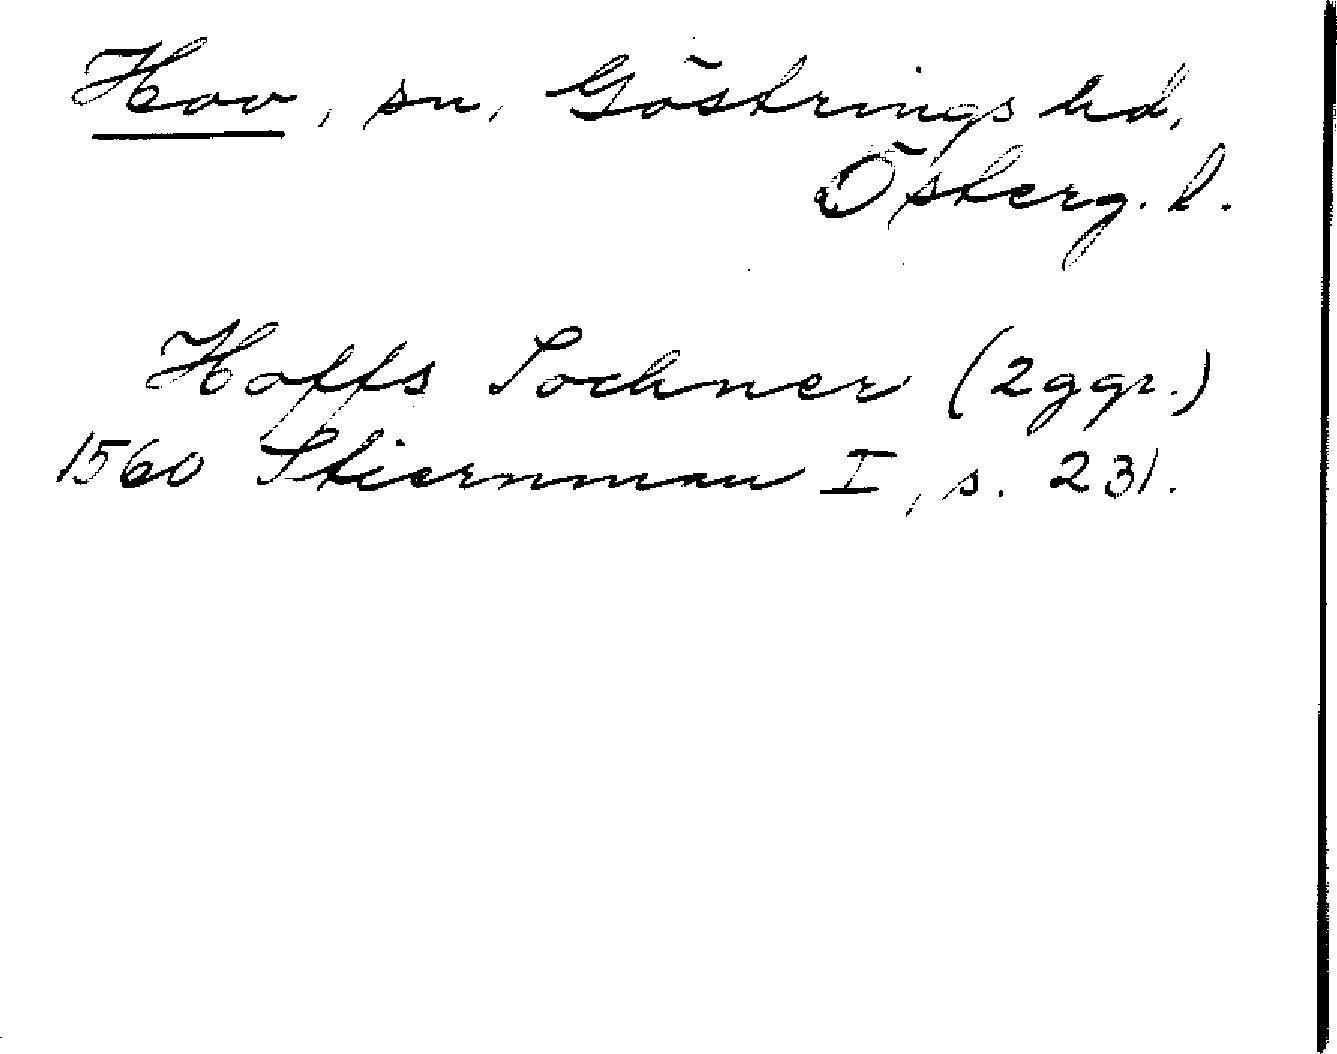 Hov, sn, Göstrings hd,
Österg. l.
Hoffs Sochner (2ggr.)
1560 Stiernman I, s. 231.